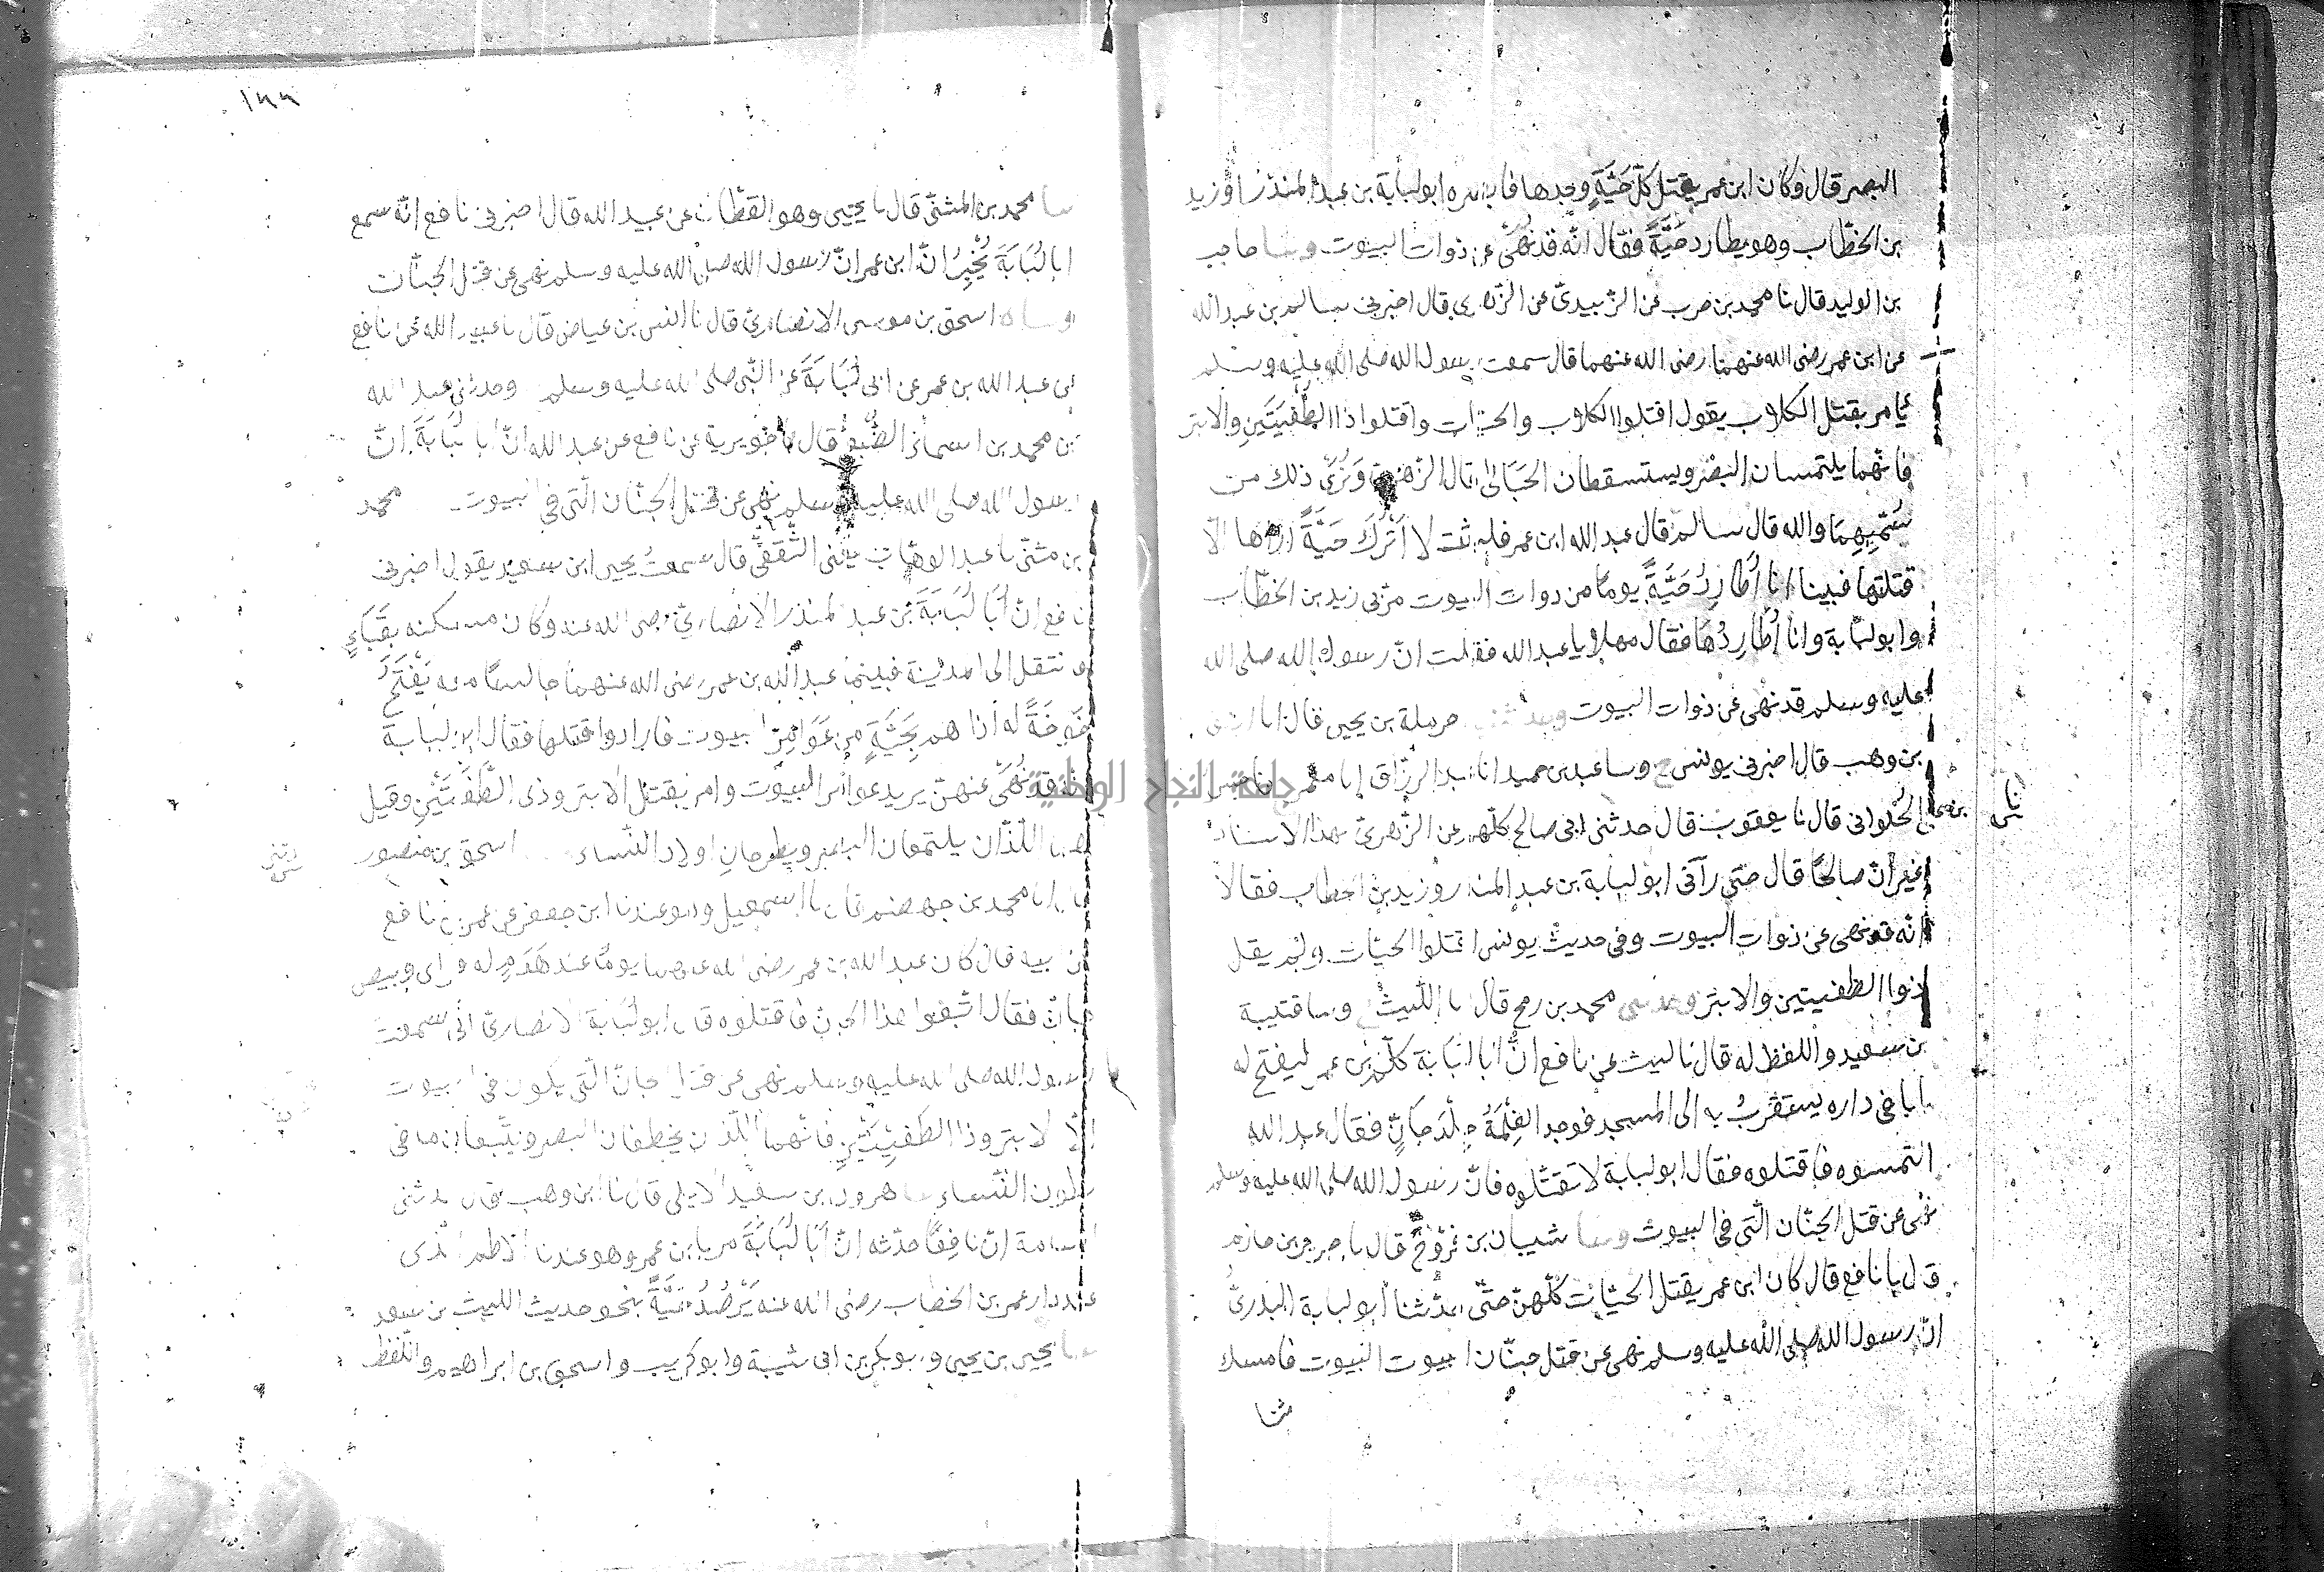 البصر قال وكان ابن عمر يقتل كل حَيَّةٍ وجدها فابصره ابو لبابة بن عبد المنذر او زيد
بن الخطّاب وهو يطارد حَيَّةً فقال انّه قد نُهىَ عن ذوات البيوت وسا حاجب
بن الوليد قال نا محمد بن حرب عن الزّبيديّ عن الزّهرى قال اخبرنى سالم بن عبد الله
عن ابن عمر رضى الله عنهما رضى الله عنهما قال سمعت رسول الله صلى الله عليه وسلم
يأمر بقتل الكلاب يقول اقتلوا الكلاب والحيّات واقتلوا ذا الطُّفيَتَينِ والابتر
فانّهما يلتمسان البصر ويستسقطان الحَبَالىٰ قال الزّهرى وَنُرىٰ ذلك من
سُمَّيهِمَا والله قال سالم قال عبد الله ابن عمر فلبثت لا اَتْرُكَ حَيَّةً اراها الّا
قتلتها فبينا انا أُطَارِدُ حَيَّةً يومًا من ذوات البيوت مرّبى زيد بن الخطّاب
وابو لبابة وانا أُطَارِدُهَا فقال مهلا يا عبد الله فقلت انّ رسول الله صلى الله
عليه وسلم قد نهى عن ذوات البيوت وحدثنى حرملة بن يحيى قال انا
بن وهب قال اخبرنى يونس ح وسا عبد بن حميد انا عبد الرزّاق انا معمر ح
الحُلوانى قال نا يعقوب قال حدثنى ابى صالح كلّهم عن الزّهرىّ بهذا الاسناد
غير انّ صالحًا قال حتى رآنى ابو لبابة بن عبد المنذر وزيد بن الخطاب فقالا
انّه قد نهى عن ذوات البيوت وفى حديث يونس اقتلوا الحيّات ولم يقل
ذوا الطفيتين والابتر وحدثنى محمد بن رمح قال نا اللّيث ح وسا قتيبة
بن سعيد واللفظ له قال نا ليث عن نافع انّ ابا لبابة كلّم بن عمر ليفتح له
بابا فى داره يستقربُ به الى المسجد فوجد الغِلمَةُ جلدَ جَانٍّ فقال عبد الله
التمسوه فاقتلوه فقال ابو لبابة لا تقتلوه فانّ رسول الله صلى الله عليه وسلم
نهى عن قتل الجنّان الّتى فى البيوت وسا شيبان بن فَرّوخٌ قال نا جرير بن حازم
قال نا نافع قال كان ابن عمر يقتل الحيّات كلّهنّ حتّى حدّثنا ابو لبابة البدرىّ
انّ رسول الله صلى الله عليه وسلم نهى عن قتل جنّان البيوت البيوت فامسك
ثنا
١٨٨
سا محمد بن المثنىّ قال نا يحيى وهو القطّان عن عبيد الله قال اخبرنى نافع انّه سمع
ابا لُبَابَةَ يُخْبِرُ انّ ابن عمر انّ رسول الله صلى الله عليه وسلم نهى عن قتل الجنّان
وساه اسحق بن موسى الانصارىّ قال نا انس بن عياض قال نا عبيد الله عن نافع
عن عبد الله بن عمر عن ابى لُبَابَةَ عن النّبى صلى الله عليه وسلم وحدثنى عبد الله
بن محمد بن اسماء الضُّبَعىّ قال نا جويرية عن نافع عن عبد الله انّ ابا لُبَابَةَ انّ
رسول الله صلى الله عليه وسلم نهى عن قتل الجنّان الّتى فى البيوت محمد
بن مثنّى نا عبد الوهّاب يعنى الثّقفىّ قال سمعت يحيى ابن سعيد يقول اخبرنى
نافع انّ اَبَا لُبَابَةَ بن عبد المنذر الانصارىّ رضى الله عنه وكان مسكنه بقُبَاءٍ
فانتقل الى المدينة فبينما عبد الله بن عمر رضى الله عنهما جالسًا معه يَفْتَحُ
خَوخَةً له اذا هم بِحَيَّةٍ من عَوَامِرِ البيوت فارادوا قتلها فقال ابو لبابة
انّه قد نُهىَ عنهنّ يريد عوامر البيوت وامر بقتل الابتر وذى الطّفيَتَيْنِ وقيل
هما اللّذان يلتمعان البصر ويطرحان اولاد النّساء اسحق بن منصور
انا محمد بن جهضم قال نا اسمعيل وهو عندنا ابن جعفر عن عمر بن نافع
عن ابيه قال كان عبد الله بن عمر رضى الله عنهما يومًا عند هَدَمٍ له فراى وبيص
جانّ فقال اتّبعوا هذا الجانّ فاقتلوه قال ابو لُبَابَةَ الانصارىّ انّى سمعت
رسول الله صلى الله عليه وسلم نهى عن قتل الجانّ الّتى يكون فى البيوت
الّا الابتر وذا الطّفيَتَيْنِ فانّهما اللّذان يخطفان البصر ويتّبعان ما فى
بطون النّساء سا هرون بن سعيد الايلى قال نا ابن وهب قال حدثنى
اسامة انّ نَافِعًا حدّثه انّ اَبَا لُبَابَةَ مرّ بابن عمر وهو عندنا الاطم الّذى
عند دار عمر بن الخطاب رضى الله عنه يَرْصُدُ حَيَّةً بنحو حديث الليث بن سعد
سا يحيى بن يحيى وابو بكر بن ابى شيبة وابو كريب واسحق بن ابراهيم واللّفظ
جامعة النجاح الوطنية